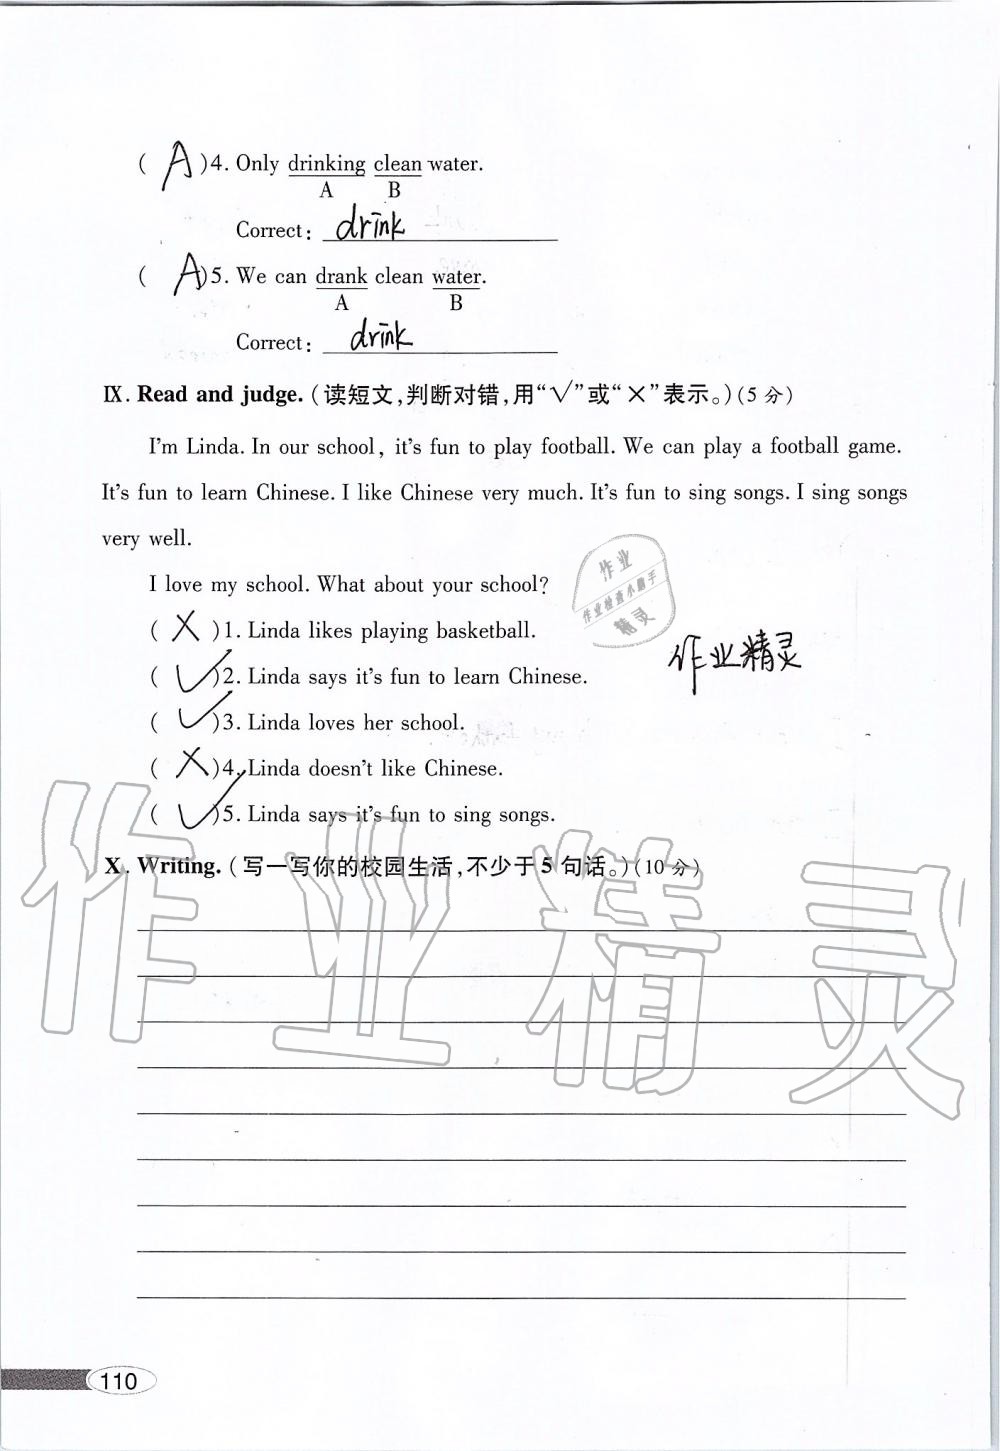 ( A )4. Only drinking clean water.
A B
Correct: drink
( A )5. We can drank clean water.
A B
Correct: drink
Ⅸ. Read and judge.(读短文,判断对错,用“√”或“×”表示。)(5 分)
I'm Linda. In our school, it's fun to play football. We can play a football game.
It's fun to learn Chinese. I like Chinese very much. It's fun to sing songs. I sing songs
very well.
I love my school. What about your school?
( × )1. Linda likes playing basketball.
( √ )2. Linda says it's fun to learn Chinese.
( √ )3. Linda loves her school.
( × )4. Linda doesn't like Chinese.
( √ )5. Linda says it's fun to sing songs.
作业
作业检查小助手
精灵
作业精灵
Ⅹ. Writing.(写一写你的校园生活,不少于 5 句话。)(10 分)
作业精灵
110